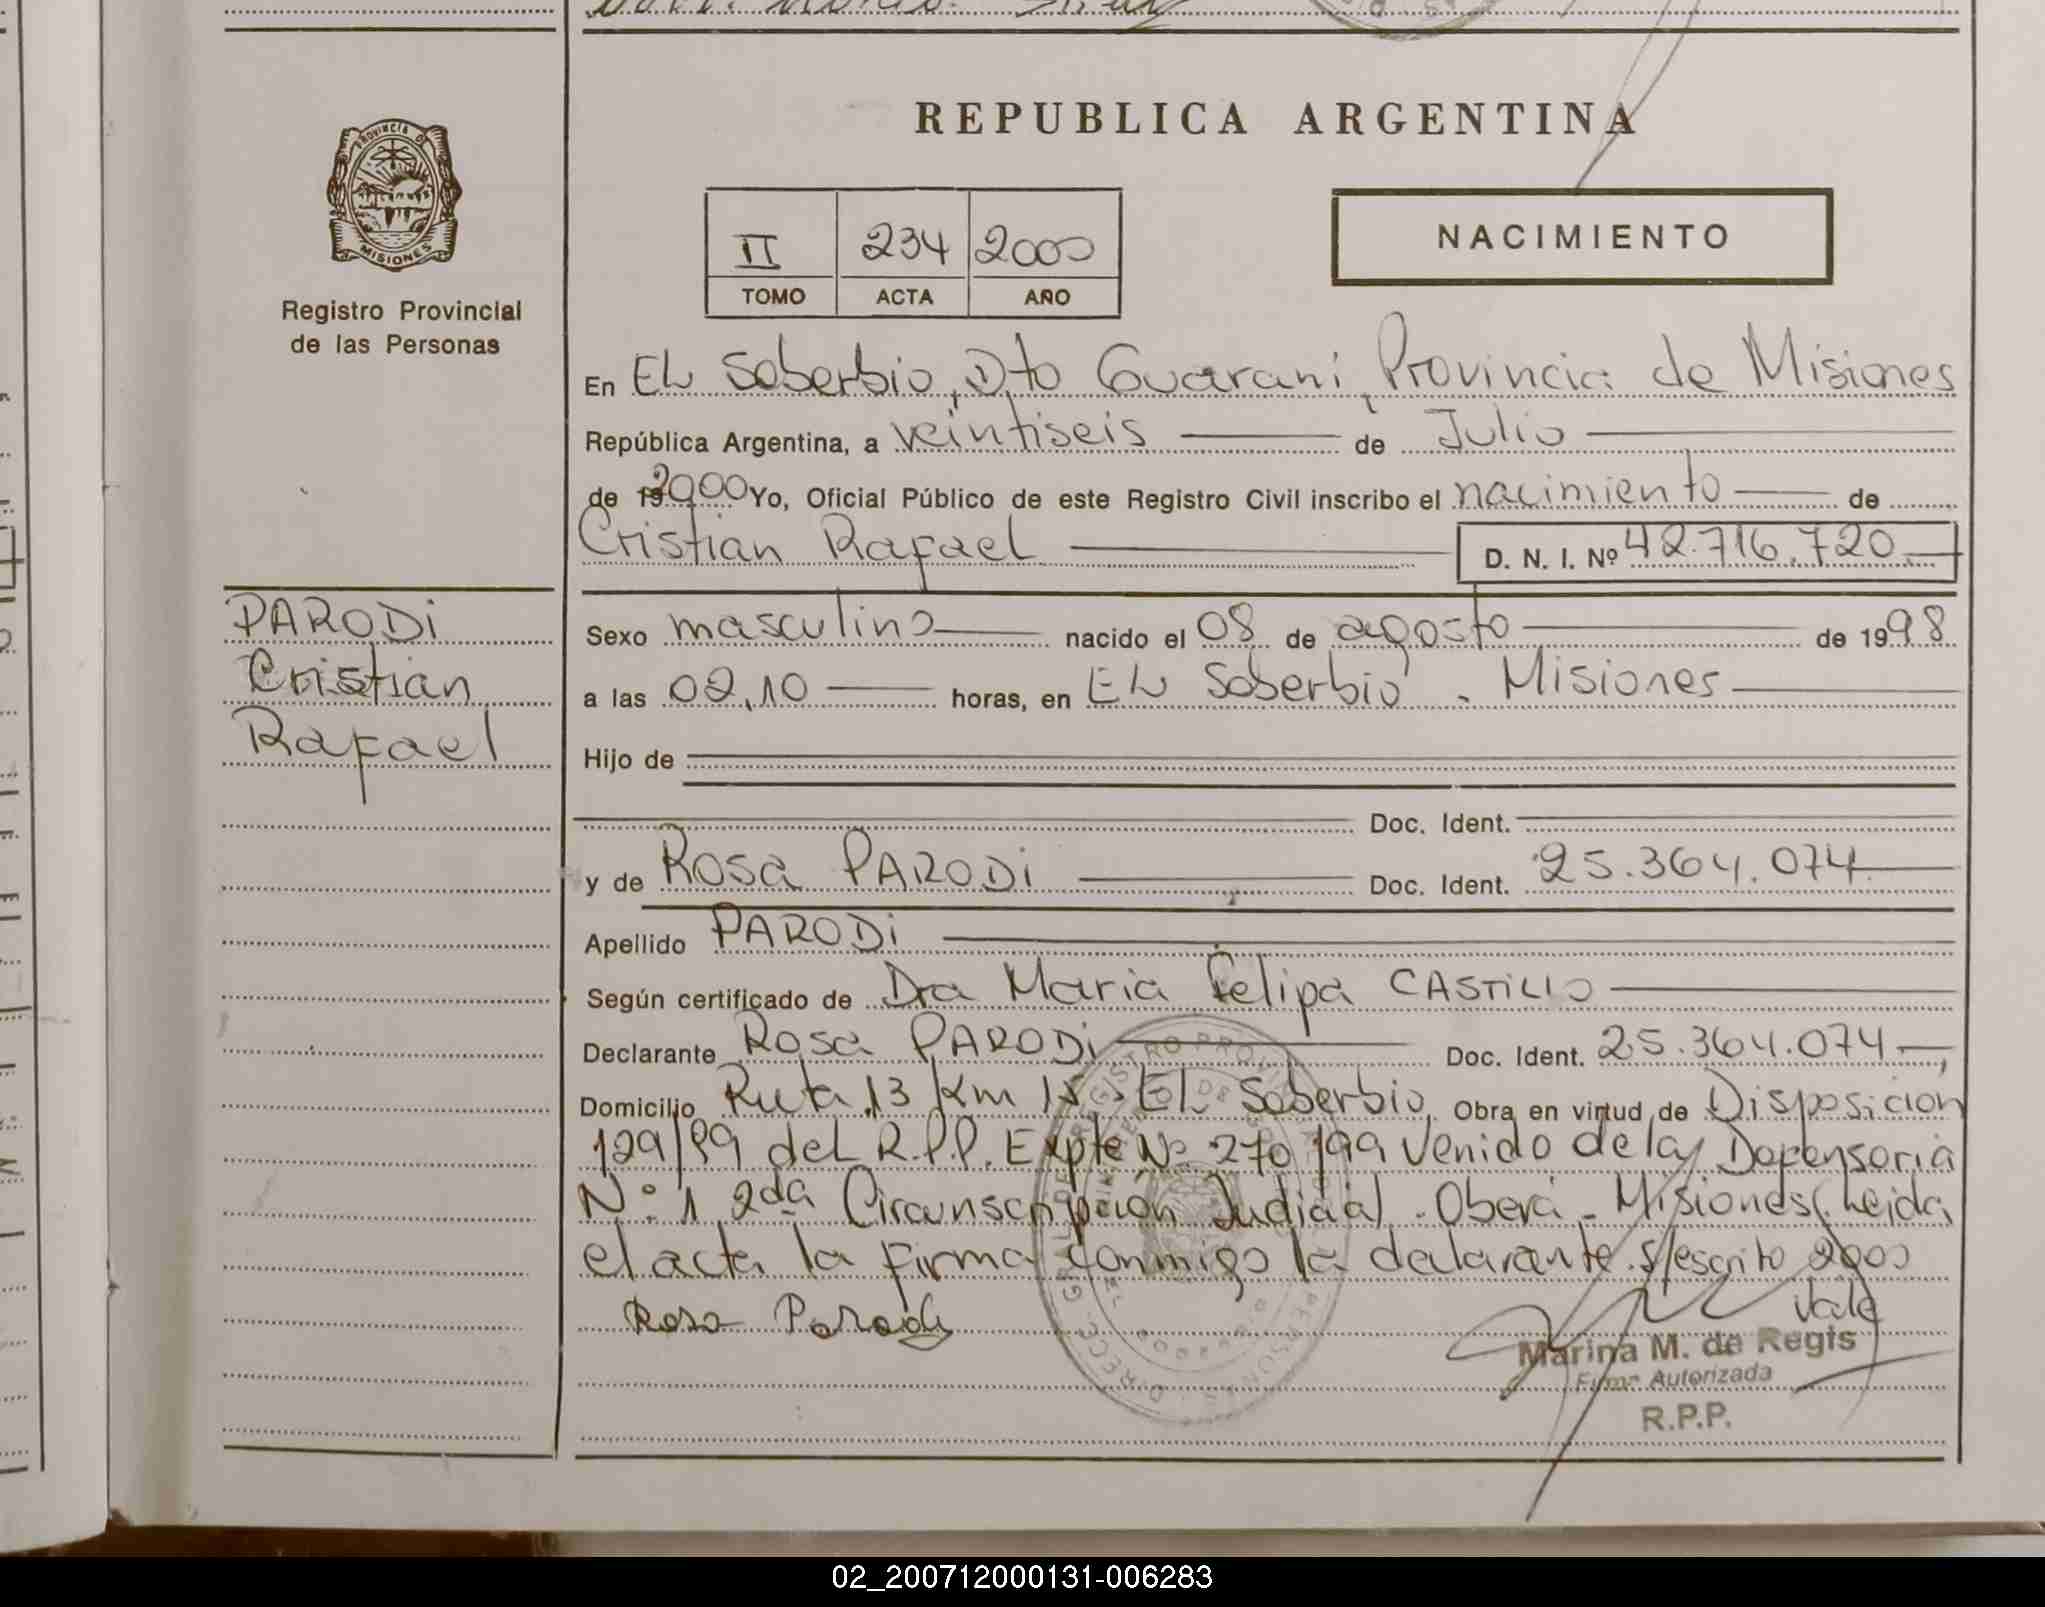 REPUBLICA ARGENTINA
PROVINCIA D
MISIONES
Registro Provincial
de las Personas
II 234 2000
TOMO ACTA AÑO
NACIMIENTO
En EL Soberbio, Dto Guaraní, Provincia de Misiones
República Argentina, a veintiseis de Julio
de 192000 Yo, Oficial Público de este Registro Civil inscribo el nacimiento de
Cristian Rafael D. N. I. Nº 42.716.720
PARODi
Cristian
Rafael
Sexo masculino nacido el 08 de agosto de 1998
a las 02,10 horas, en EL Soberbio - Misiones
Hijo de
Doc. Ident.
y de Rosa PARODi Doc. Ident. 25.364.074
Apellido PARODi
Según certificado de Dra Maria Felipa CASTILLO
Declarante Rosa PARODi Doc. Ident. 25.364.074
Domicilio Ruta 13 Km EL Soberbio Obra en virtud de Disposicion
129/99 del R.P.P. Expte Nº 270/99 venido de la Defensoria
Nº 1 2da Circunscripción Judicial - Oberá - Misiones Leida
el acta la firma conmigo la declarante. s/escrito 2000
Rosa Parodi Vale
Marina M. de Regis
Firma Autorizada
R.P.P.
02_200712000131-006283